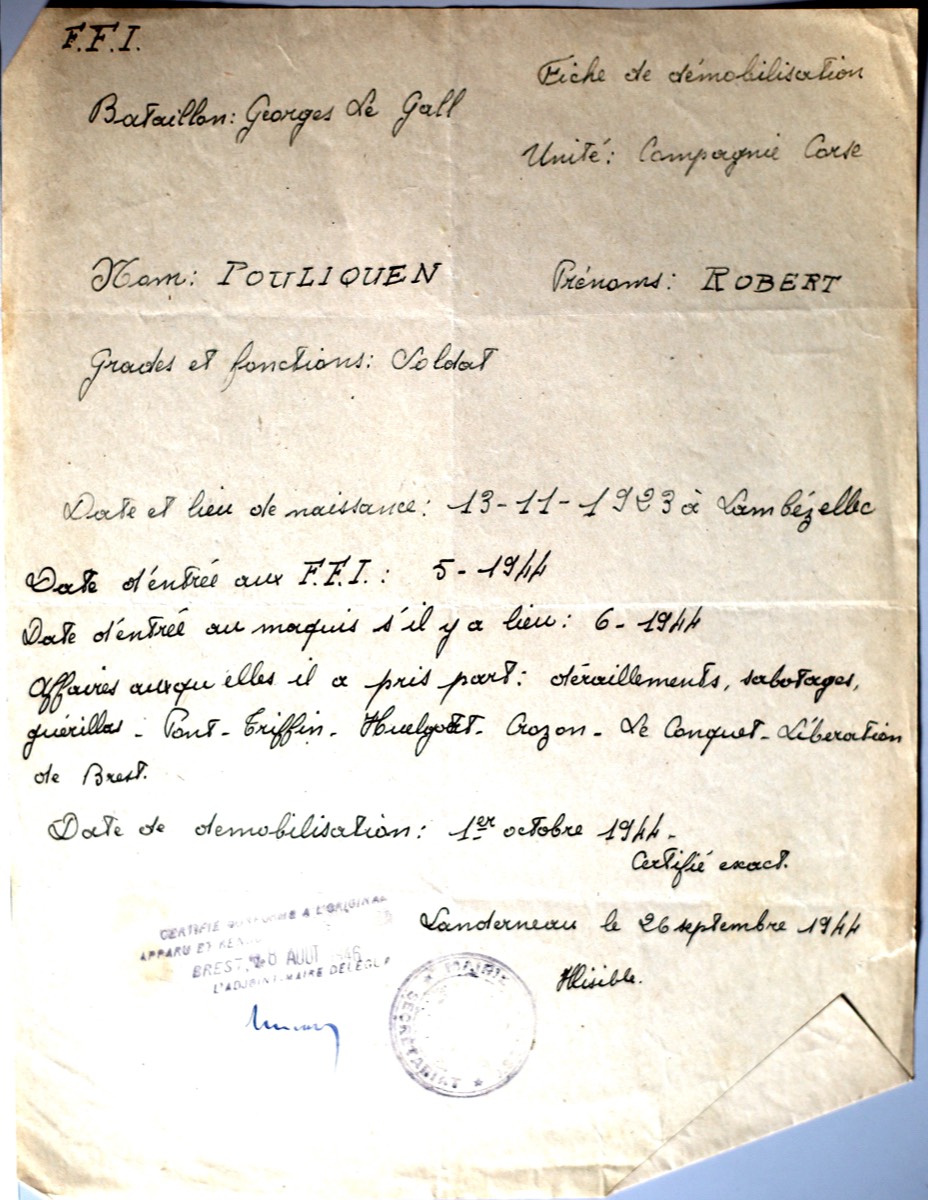 F.F.I.
Fiche de démobilisation
Bataillon: Georges Le Gall
Unité: Compagnie Corse
Nom: POULIQUEN
Prénoms: ROBERT
Grades et fonctions: Soldat
Date et lieu de naissance: 13-11-1923 à Lambézellec
Date d'entrée aux F.F.I.: 5-1944
Date d'entrée au maquis s'il y a lieu: 6-1944
Affaires auxquelles il a pris part: déraillements, sabotages,
guérillas - Pont-Triffin - Huelgoat - Crozon - Le Conquet - Libération
de Brest.
Date de demobilisation: 1er octobre 1944-
Certifié exact.
Landerneau le 26 septembre 1944
Illisible.
CERTIFIE CONFORME A L'ORIGINAL
APPARU ET RENDU
BREST, 8 AOUT 1946
L'ADJOINT-MAIRE DÉLÉGUÉ
MAIRIE
SECRÉTARIAT